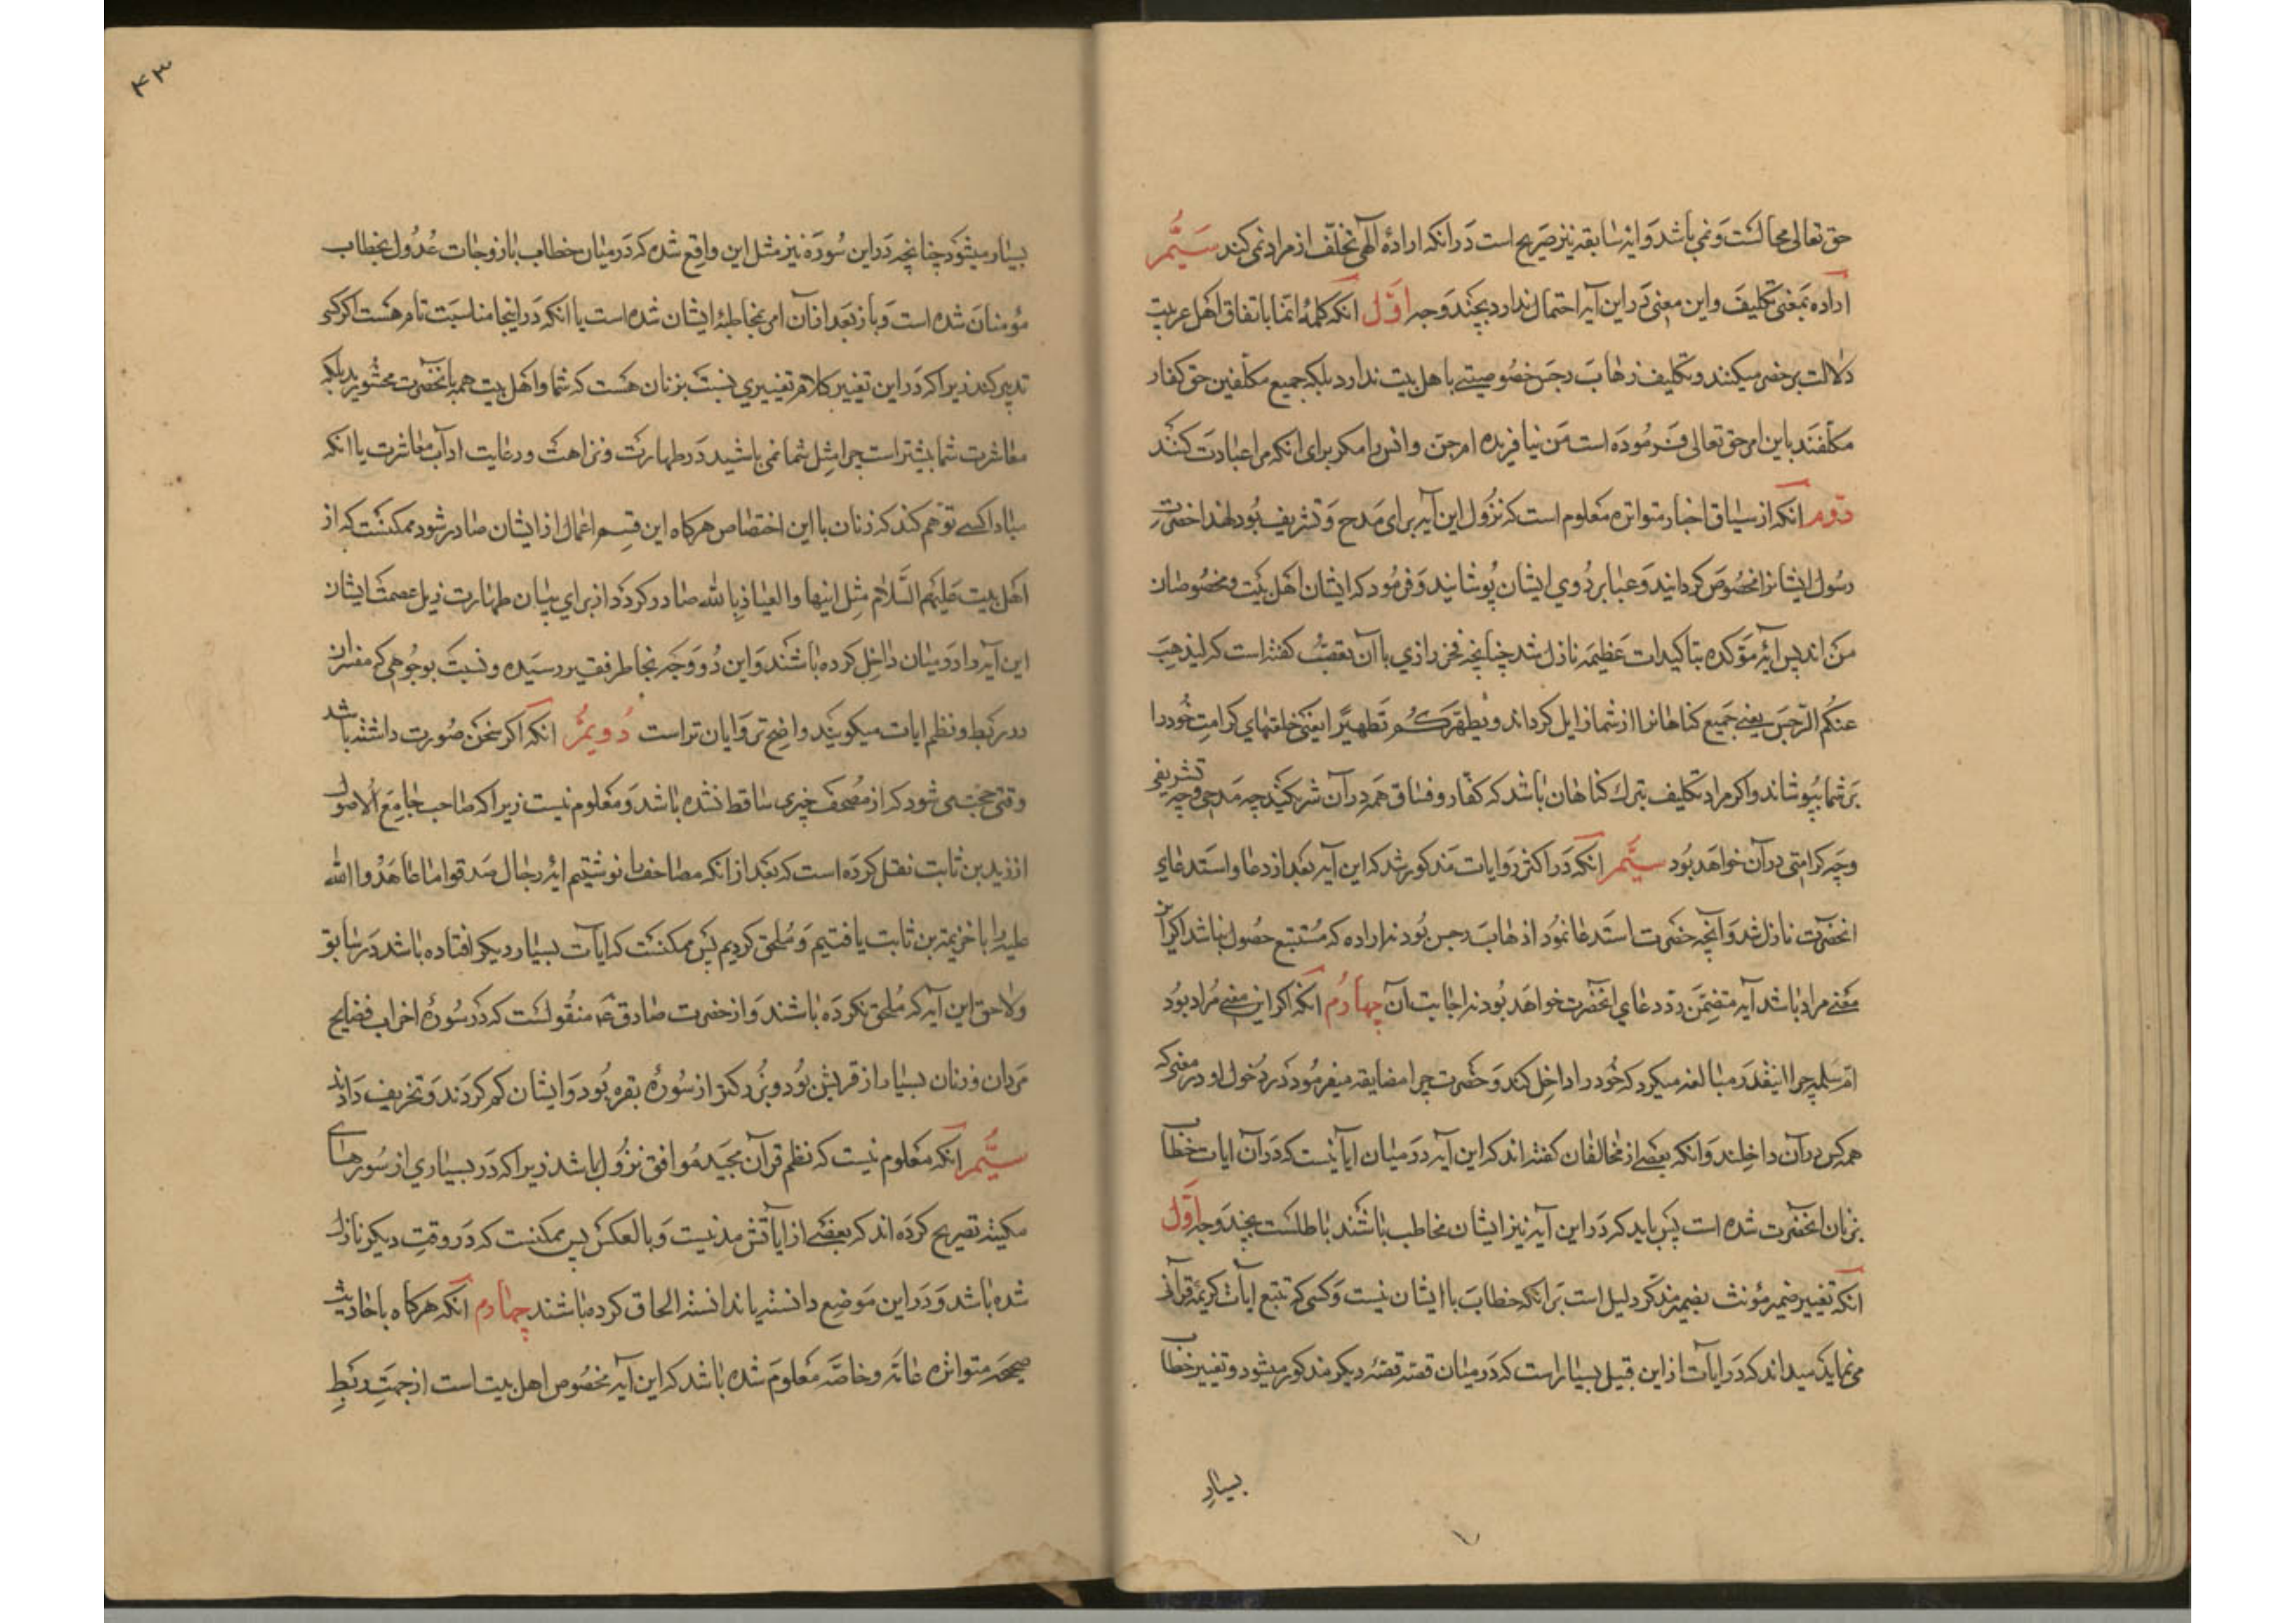 حق تعالی محالست و نمی باشد و ایه سابقه نیز صریح است در انکه اراده الهی تخلّف از مراد نمی کند سیّم
اراده بمعنی تکلیف و این معنی در این آیه احتمال ندارد بچند وجه اوّل انکه کلمهٔ انّما باتفاق اهل عربیت
دلالت بر حصر میکنند و تکلیف ذهاب رجس خصوصیتے باهل بیت ندارد بلکه جمیع مکلّفین حتی کفار
مکلّفند باین امر حق تعالی فرموده است من نیافریده ام جن و انس را مکر برای انکه مرا عبادت کنند
دوّم انکه از سیاق اخبار متواتره معلوم است که نزول این آیه برای مدح و تشریف بود لهذا حضرت
رسول ایشانرا مخصوص کردانید و عبا بر روی ایشان پوشانید و فرمود که ایشان اهل بیت و مخصوصان
من اند پس ایهٔ مؤکده بتاکیدات عظیمه نازل شد چنانچه فخر رازی با آن تعصّب کفته است که لیذهب
عنکم الرّجس یعنے جمیع کناهانرا از شما زایل کرداند و یطهّرکم تطهیرًا یعنی خلعتهای کرامت خود را
بر شما بپوشاند و اکر مراد تکلیف بترک کناهان باشد که کفّار و فسّاق همه در آن شریکند چه مدحی و چه تشریفی
و چه کرامتی در آن خواهد بود سیّم انکه در اکثر روایات مذکور شد که این آیه بعد از دعا و استدعای
انحضرت نازل شد و آنچه حضرت استدعا نمود اذهاب رجس بود نه اراده که مستتبع حصول نباشد اکر این
معنے مراد باشد آیه متضمّن ردّ دعای انحضرت خواهد بود نه اجابت آن چهارم انکه اکر این معنے مراد بود
امّ سلمه چرا اینقدر مبالغه میکرد که خود را داخل کند و حضرت چرا مضایقه میفرمود در دخول او در معنی که
همه کس در آن داخلند و انکه بعضے از مخالفان کفته اند که این آیه در میان ایاتیست که در آن ایات خطاب
بزنان انحضرت شده است پس باید که در این آیه نیز ایشان مخاطب باشند باطلست بچند وجه اوّل
انکه تغییر ضمیر مؤنث بضمیر مذکّر دلیل است بر انکه خطاب با ایشان نیست و کسی که تتبع ایات کریمهٔ قرآنی
می نماید میداند که در ایات از این قبیل بسیار است که در میان قصّه قصّهٔ دیکر مذکور میشود و تغییر خطاب
بسیار
۴۳
بسیار میشود چنانچه در این سوره نیز مثل این واقع شده که در میان خطاب با زوجات عدول بخطاب
مؤمنان شده است و باز بعد از آن امر بمخاطبهٔ ایشان شده است با انکه در اینجا مناسبت تام هست اکر کسی
تدبر کند زیرا که در این تغییر کلام تغییری نسبت بزنان هست که شما و اهل بیت همه بانحضرت محشورید بلکه
معاشرت شما بیشتر است چرا مثل شما نمی باشید در طهارت و نزاهت و رعایت اداب معاشرت یا انکه
مبادا کسے توهم کند که زنان با این اختصاص هرکاه این قسم اعمال از ایشان صادر شود ممکنست که از
اهل بیت علیهم السّلام مثل اینها و العیاذ بالله صادر کردد از برای بیان طهارت ذیل عصمت ایشان
این آیه را در میان داخل کرده باشند و این دو وجه بخاطر فقیر رسیده و نسبت بوجوهی که مفسران
در ربط و نظم ایات میکویند واضح تر و ایان تر است دویّم انکه اکر سخن صورت داشته باشد
وقتی حجت می شود که از مصحف چیزی ساقط نشده باشد و معلوم نیست زیرا که صاحب جامع الاصول
از زید بن ثابت نقل کرده است که بعد از انکه مصاحف را نوشتیم ایهٔ رجال صدقوا ما عاهدوا الله
علیه را با خزیمة بن ثابت یافتیم و ملحق کردیم پس ممکنست که ایات بسیار دیکر افتاده باشد در سابق
و لاحق این آیه که ملحق نکرده باشند و از حضرت صادق ع منقولست که در سورهٔ احزاب فضایح
مردان و زنان بسیار از قریش بود و بزرکتر از سورهٔ بقره بود و ایشان کم کردند و تحریف دادند
سیّم انکه معلوم نیست که نظم قرآن مجید موافق نزول باشد زیرا که در بسیاری از سورهای
مکیّه تصریح کرده اند که بعضے از ایاتش مدنیست و بالعکس پس ممکنست که در وقت دیکر نازل
شده باشد و در این موضع دانسته یا ندانسته الحاق کرده باشند چهارم انکه هرکاه باحادیث
صحیحه متواتره عامّه و خاصّه معلوم شده باشد که این آیه مخصوص اهل بیت است از جهت ربط